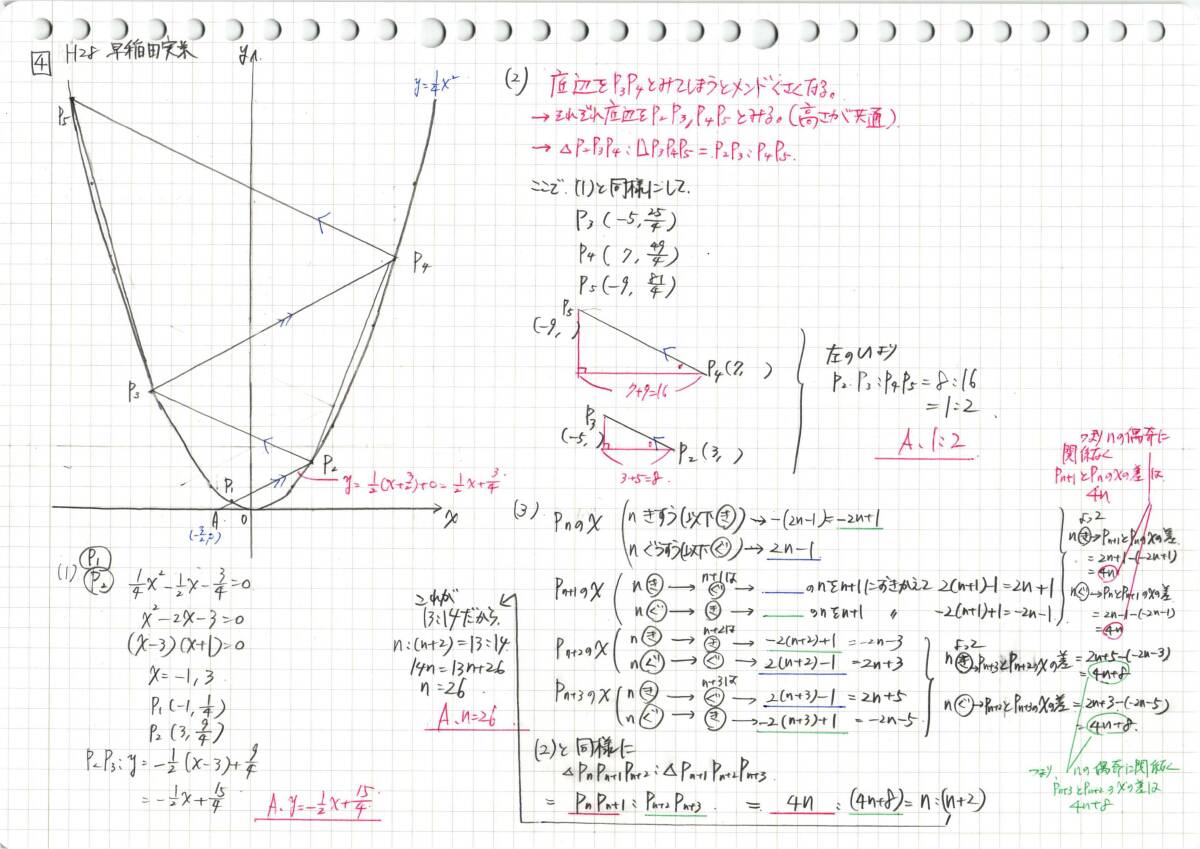 4 H28 早稲田実業
y
y=1/4x²
P5
P4
P3
P2
P1
A
(-3/2,0)
0
x
y=1/2(x+3/2)+0=1/2x+3/4
(1) P1
P2
1/4x²-1/2x-3/4=0
x²-2x-3=0
(x-3)(x+1)=0
x=-1,3
P1(-1,1/4)
P2(3,9/4)
P2P3:y=-1/2(x-3)+9/4
=-1/2x+15/4
A. y=-1/2x+15/4
(2) 底辺をP3P4とみてしまうとメンドくさくなる。
→それぞれ底辺をP2P3,P4P5とみる。(高さが共通)
→△P2P3P4:△P3P4P5=P2P3:P4P5.
ここで、(1)と同様にして、
P3(-5,25/4)
P4(7,49/4)
P5(-9,81/4)
P5
(-9, )
P4(7, )
7+9=16
P3
(-5, )
P2(3, )
3+5=8
左のいより
P2P3:P4P5=8:16
=1:2
A. 1:2
(3) Pnのx
nきすう(以下き)→-(2n-1)=-2n+1
nぐうすう(以下ぐ)→2n-1
Pn+1のx
nき→n+1はぐ→のnをn+1におきかえて 2(n+1)-1=2n+1
nぐ→き→のnをn+1 〃 -2(n+1)+1=-2n-1
Pn+2のx
nき→n+2はき→-2(n+2)+1=-2n-3
nぐ→ぐ→2(n+2)-1=2n+3
Pn+3のx
nき→n+3はぐ→2(n+3)-1=2n+5
nぐ→き→-2(n+3)+1=-2n-5
よって
nき→Pn+1とPnのxの差
=2n+1-(-2n+1)
=4n
nぐ→PnとPn+1のxの差
=2n-1-(-2n-1)
=4n
つまりnの偶奇に
関係なく
Pn+1とPnのxの差は
4n
よって
nき→Pn+3とPn+2のxの差=2n+5-(-2n-3)
=4n+8
nぐ→Pn+2とPn+3のxの差=2n+3-(-2n-5)
=4n+8
つまり、nの偶奇に関係なく
Pn+3とPn+2のxの差は
4n+8
(2)と同様に
△PnPn+1Pn+2:△Pn+1Pn+2Pn+3
=PnPn+1:Pn+2Pn+3 = 4n:(4n+8)=n:(n+2)
これが
13:14だから
n:(n+2)=13:14
14n=13n+26
n=26
A. n=26